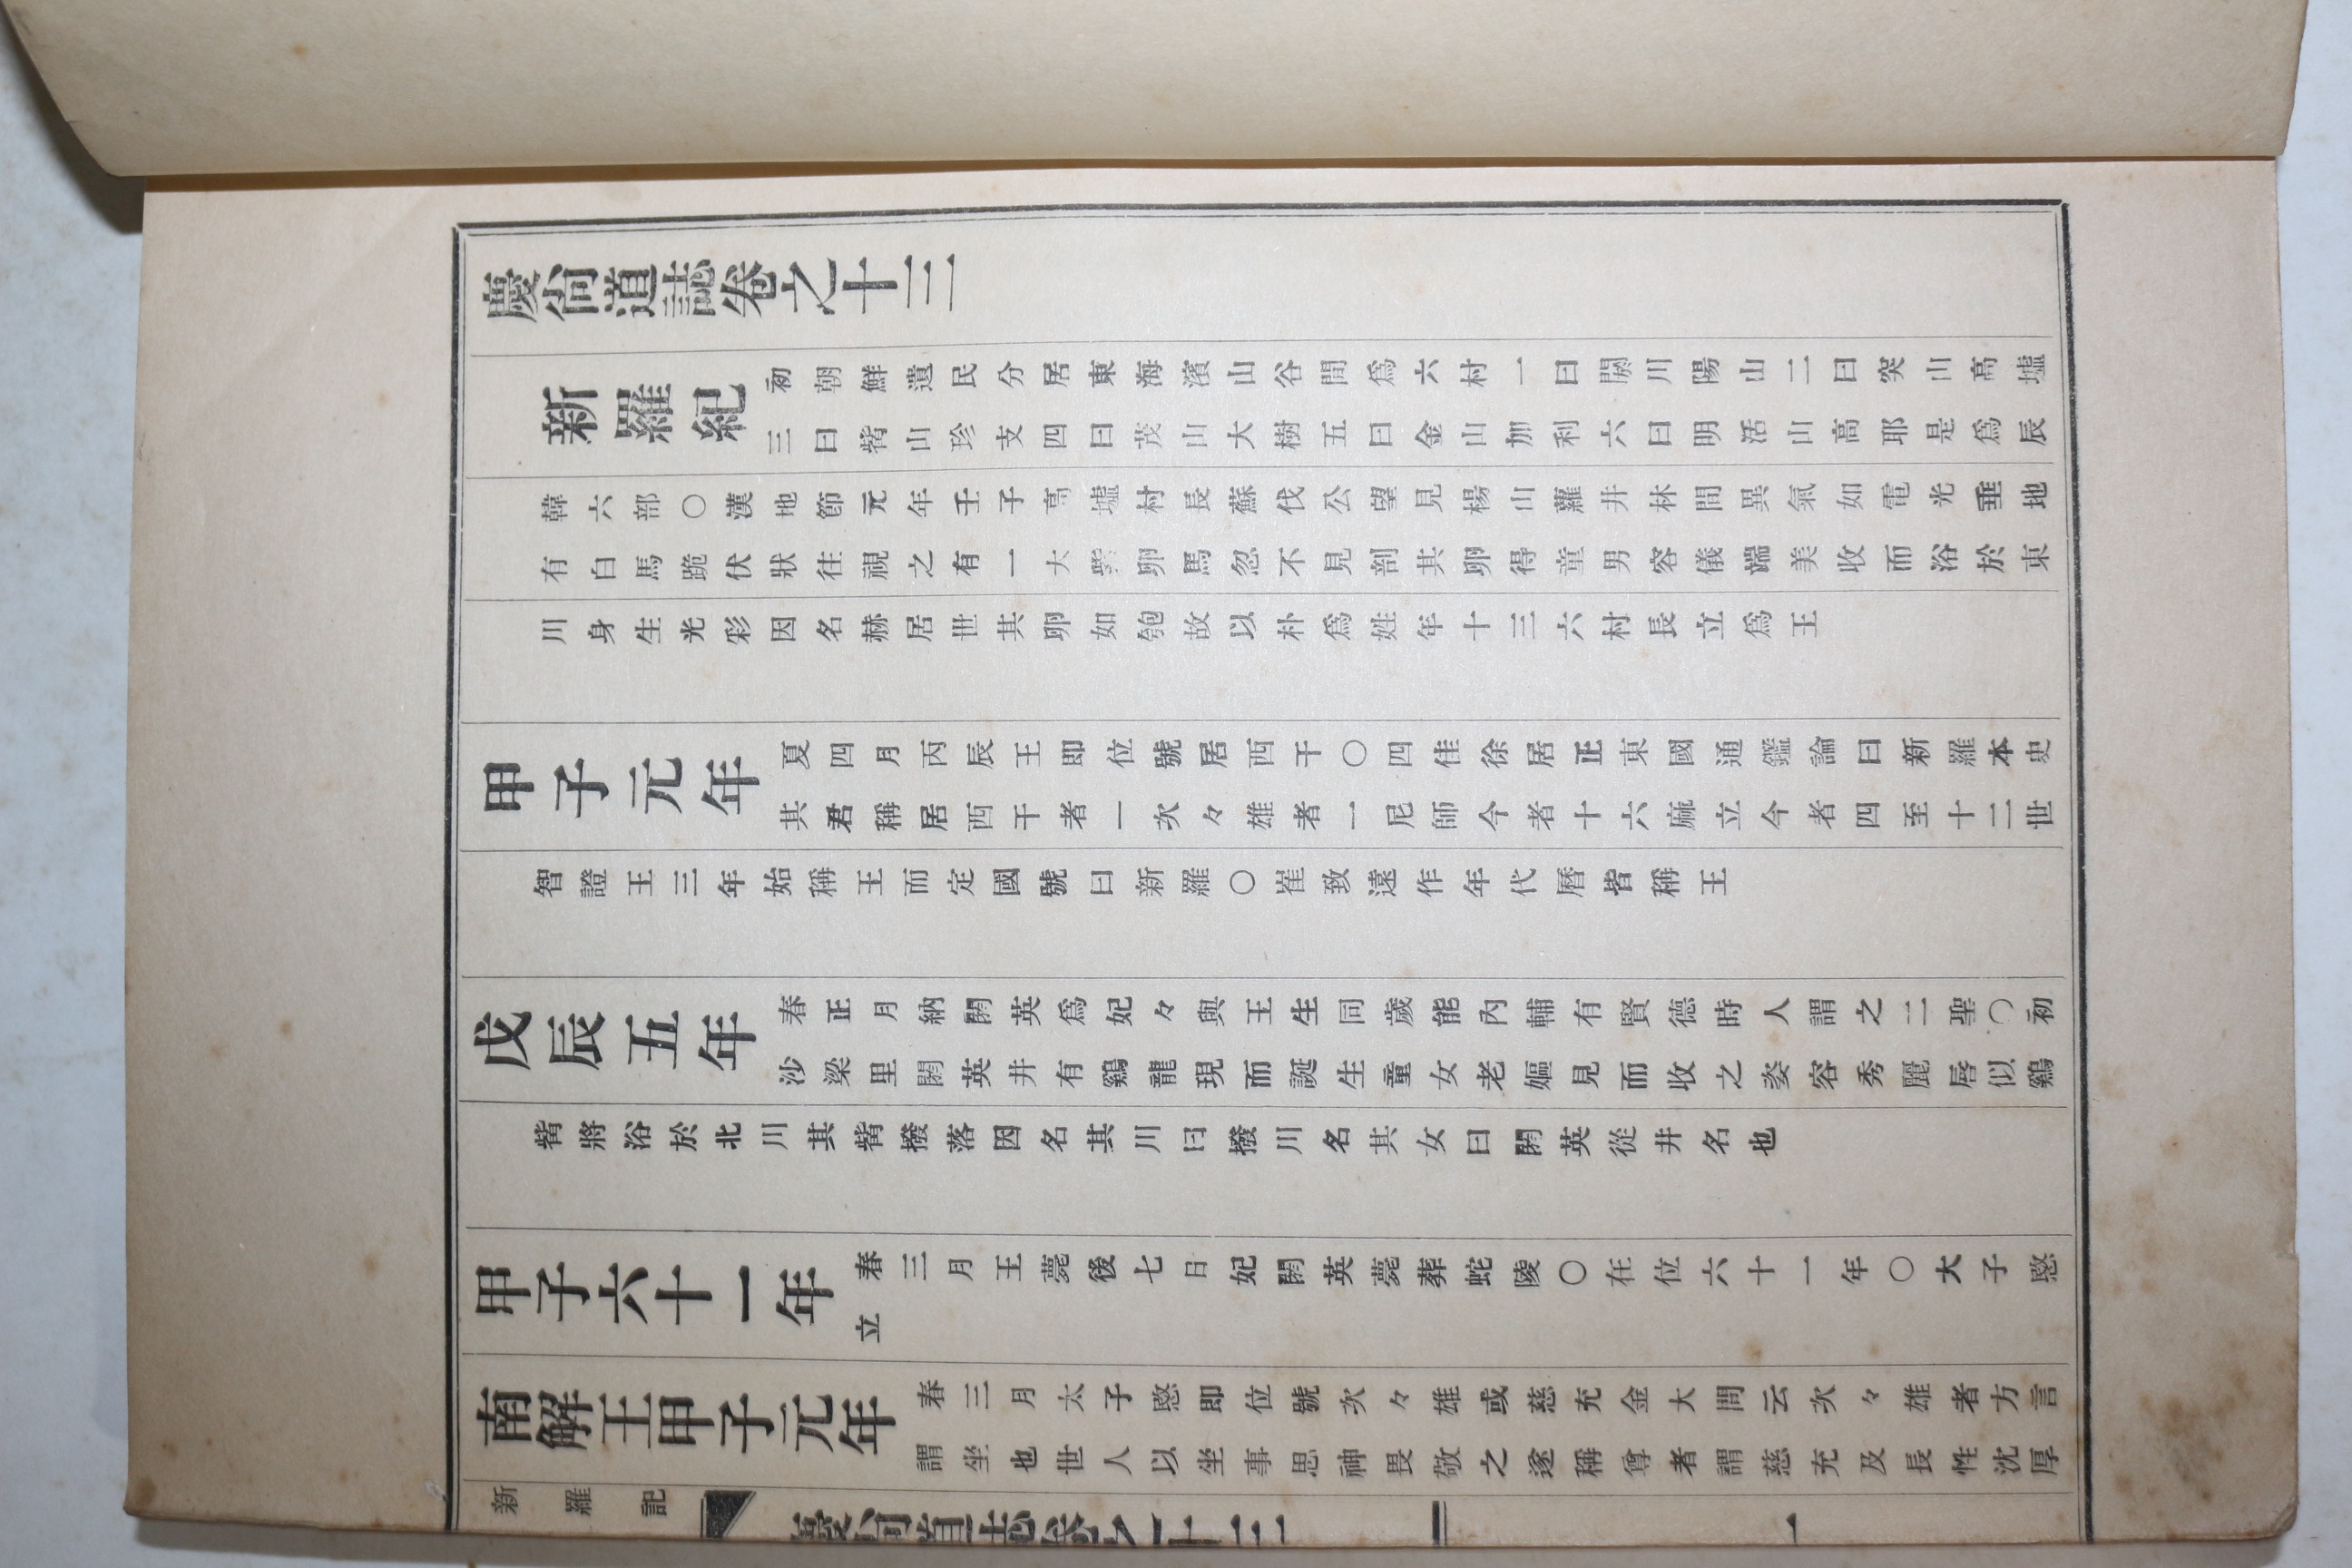 慶尙道誌卷之十三
新羅紀
初朝鮮遺民分居東海濱山谷間爲六村一曰閼川陽山二曰突山高墟
三曰觜山珍支四曰茂山大樹五曰金山加利六曰明活山高耶是爲辰
韓六部○漢地節元年壬子高墟村長蘇伐公望見楊山蘿井林間異氣如電光垂地
有白馬跪伏狀往視之有一大紫卵馬忽不見剖其卵得童男容儀端美收而浴於東
川身生光彩因名赫居世其卵如匏故以朴爲姓年十三六村長立爲王
甲子元年
夏四月丙辰王即位號居西干○四佳徐居正東國通鑑論曰新羅本史
其君稱居西干者一次々雄者一尼師今者十六麻立今者四至十二世
智證王三年始稱王而定國號曰新羅○崔致遠作年代曆皆稱王
戊辰五年
春正月納閼英爲妃々與王生同歲能內輔有賢德時人謂之二聖○初
沙梁里閼英井有鷄龍現而誕生童女老嫗見而收之姿容秀麗唇似鷄
觜將浴於北川其觜撥落因名其川曰撥川名其女曰閼英從井名也
甲子六十一年
春三月王薨後七日妃閼英薨葬蛇陵○在位六十一年○大子愍
立
南解王甲子元年
春三月太子愍即位號次々雄或慈充金大問云次々雄者方言
謂坐也世人以坐事思神畏敬之遂稱尊者謂慈充及長性沈厚
新羅記
慶尙道誌卷之十三
一